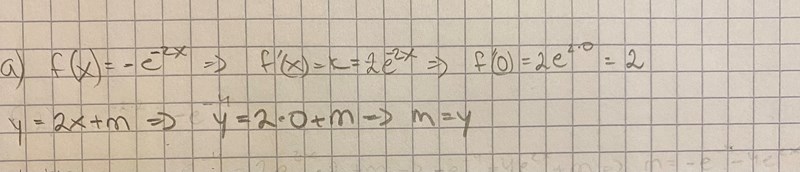 a) f(x) = -e^-2x => f'(x) = k = 2e^-2x => f'(0) = 2e^2·0 = 2
y = 2x+m => y = 2·0+m => m = y